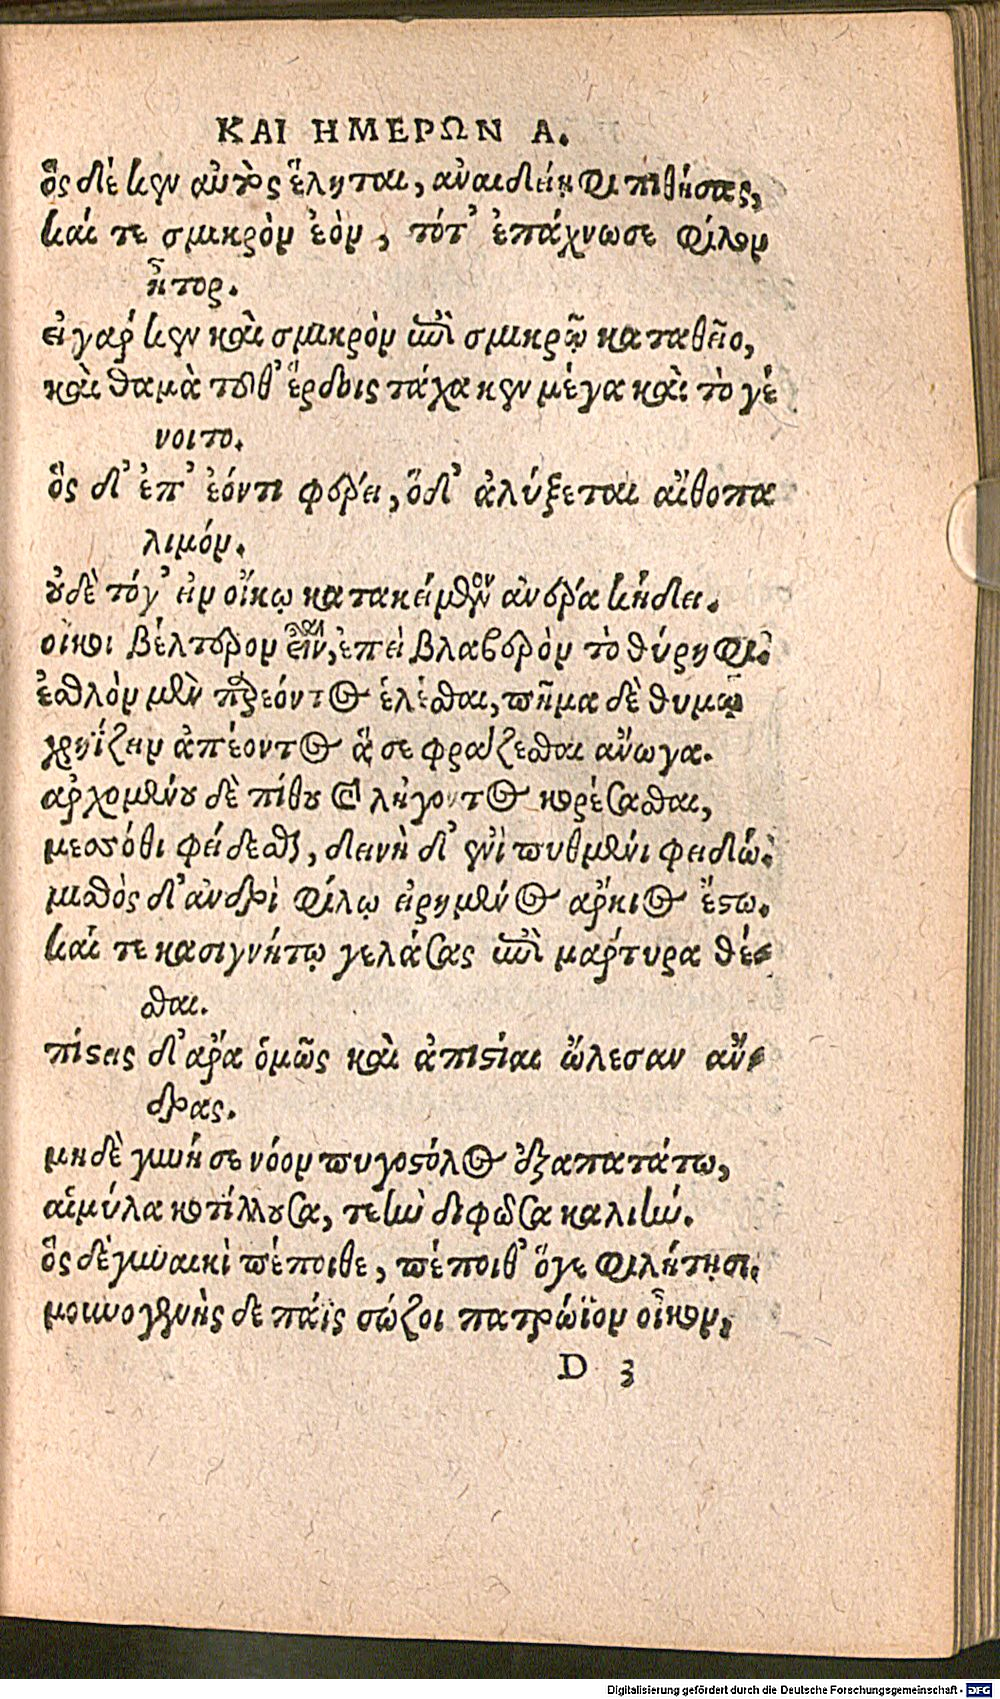 ΚΑΙ ΗΜΕΡΩΝ Α.
ὃς δέ κεν αὐτὸς ἕληται, ἀναιδείηφι πιθήσας,
καί τε σμικρὸν ἐὸν, τότ' ἐπάχνωσε φίλον
ἦτορ.
εἰ γάρ κεν καὶ σμικρὸν ἐπὶ σμικρῷ καταθεῖο,
καὶ θαμὰ τοῦθ' ἕρδοις τάχα κεν μέγα καὶ τὸ γέ
νοιτο.
ὃς δ' ἐπ' ἐόντι φέρει, ὅδ' ἀλύξεται αἴθοπα
λιμόν.
οὐδὲ τόγ' εἰν οἴκῳ κατακείμενον ἀνέρα κήδει.
οἴκοι βέλτερον εἶναι, ἐπεὶ βλαβερὸν τὸ θύρηφι.
ἐσθλὸν μὲν παρεόντος ἑλέσθαι, πῆμα δὲ θυμῷ
χρηΐζειν ἀπέοντος ἅ σε φράζεσθαι ἄνωγα.
ἀρχομένου δὲ πίθου καὶ λήγοντος κορέσασθαι,
μεσσόθι φείδεσθαι, δεινὴ δ' ἐνὶ πυθμένι φειδώ.
μισθὸς δ' ἀνδρὶ φίλῳ εἰρημένος ἄρκιος ἔστω.
καί τε κασιγνήτῳ γελάσας ἐπὶ μάρτυρα θέ-
σθαι.
πίστεις δ' ἄρα ὁμῶς καὶ ἀπιστίαι ὤλεσαν ἄν-
δρας.
μηδὲ γυνή σε νόον πυγοστόλος ἐξαπατάτω,
αἱμύλα κωτίλλουσα, τεὴν διφῶσα καλιήν.
ὃς δὲ γυναικὶ πέποιθε, πέποιθ' ὅγε φιλήτῃσι.
μουνογενὴς δὲ πάϊς σώζοι πατρώϊον οἶκον,
D 3
Digitalisierung gefördert durch die Deutsche Forschungsgemeinschaft - DFG